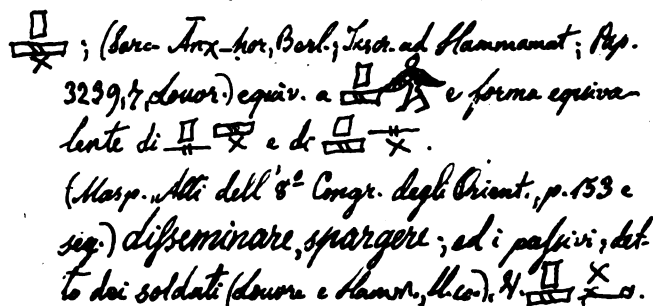 ; (Sarc. Anx-hor, Berl.; Inscr. ad Hammamat; Pap.
3239, 7, Louvr.) equiv. a e forma equiva-
lente di e di .
(Masp., Atti dell' 8º Congr. degli Orient., p. 153 e
seg.) disseminare, spargere; ed i passivi; det-
to dei soldati (Louvre e Hamm., ll.cc.). V. .